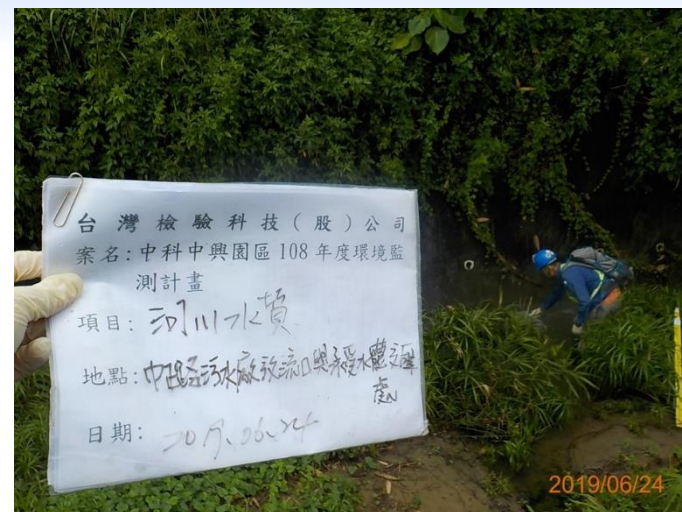 台灣檢驗科技(股)公司
案名:中科中興園區 108 年度環境監
測計畫
項目:河川水質
地點:中興系污水廠放流口與承受水體交匯
處N
日期:2019.06.24
2019/06/24